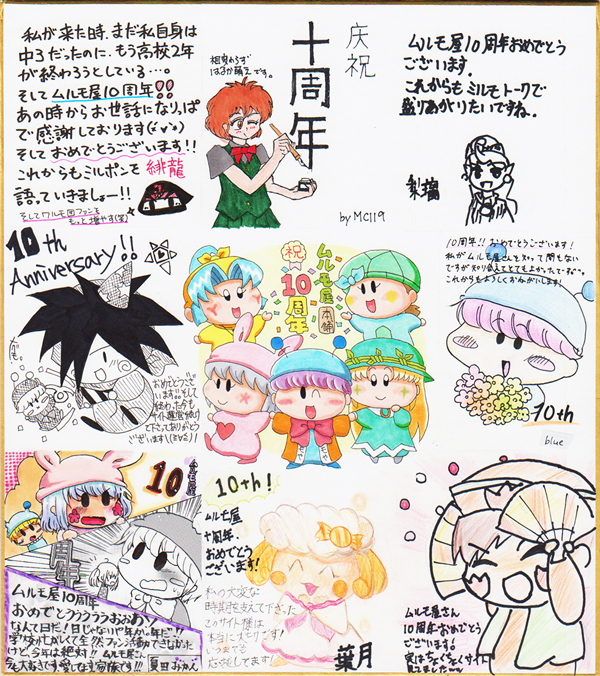 私が来た時、まだ私自身は
中3だったのに、もう高校2年
が終わろうとしている…。
そしてムルモ屋10周年!!
あの時からお世話になりっぱ
で感謝しております(
そしておめでとうございます!!
これからもミルポンを 緋龍
語っていきましょー!!
そしてワルモ団ファンを
もっと増やす(笑)
相変わらず
はるか萌えです。
庆祝
十周年
by MC119
ムルモ屋10周年おめでとう
ございます。
これからもミルモトークで
盛りあがりたいですね。
10th
Anniversary!!
おめでとうござ
います。
サイト運営
ございます!
祝
ムルモ屋
本舗
10周年
10周年!! おめでとうございます!
私がムルモ屋さんを知って間もない
ですが知り
これからもよろしくおねがいします!
10th
blue
10
周年
ムルモ屋10周年
おめでとぅぅううおおおおお
なんて日だ!日じゃない!!年か。年だ!!
学校が忙しくて全然ファン活動できなかった
けど、今年は絶対!! ムルモ屋さん
今も大好きです愛してます家族です!!!
夏田みかん
10th!
ムルモ屋
10周年、
おめでとう
ございます!
私の大変な
時期を支えて下さった
このサイト様は
本当に大好きです!
いつまでも
応援してます!
葉月
ムルモ屋さん
10周年おめでとう
ございます。
実はちょくちょくサイト
見てました